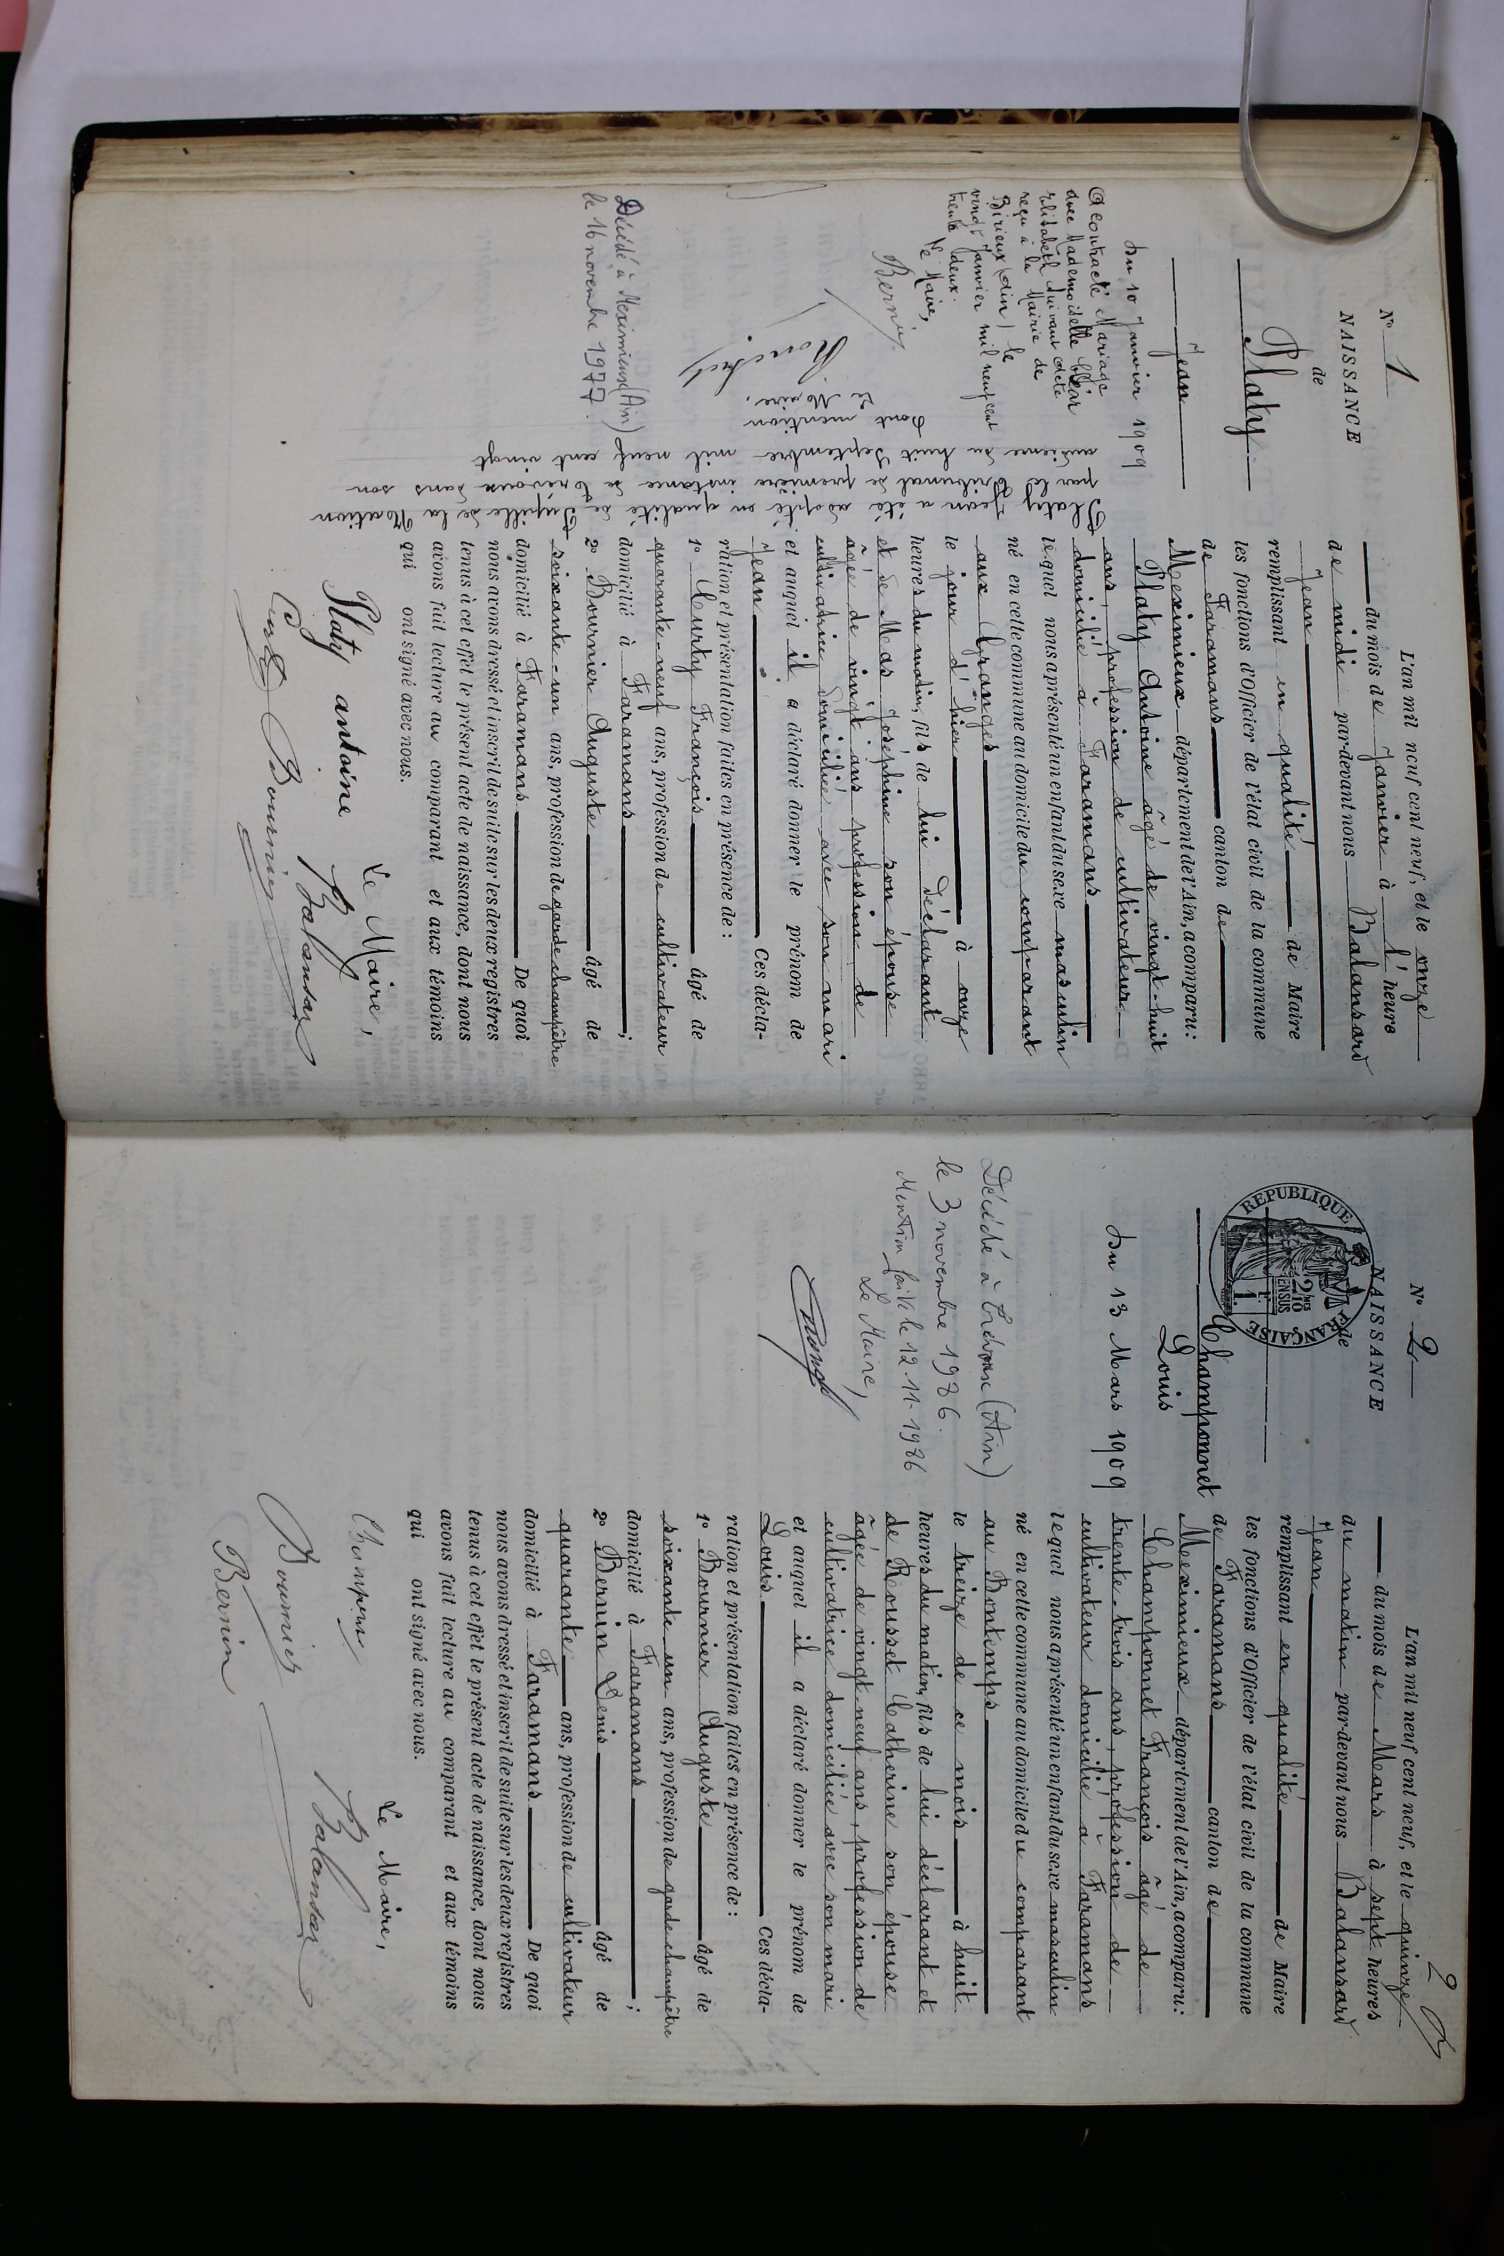 N° 1
NAISSANCE
de
Platy
Jean
du 10 Janvier 1909
A contracté Mariage
avec Mademoiselle
Elisabeth suivant acte
reçu à la Mairie de
Birieux (Ain) le
vingt Janvier mil neuf cent
trente deux.
Le Maire,
Bernin
Platy Jean a été adopté en qualité de Pupille de la Nation
par le Tribunal de première instance de Trévoux dans son
audience du huit Septembre mil neuf cent vingt
dont mention
Le Maire,
Décédé à Meximieux (Ain)
le 16 novembre 1977.
L'an mil neuf cent neuf, et le onze
du mois de Janvier à l' heure
de midi par-devant nous Balansard
Jean
remplissant en qualité de Maire
les fonctions d'Officier de l'état civil de la commune
de Faramans canton de
Meximieux département de l'Ain, a comparu:
Platy Antoine âgé de vingt-huit
ans, profession de cultivateur
domicilié à Faramans
lequel nous a présenté un enfant du sexe masculin
né en cette commune au domicile du comparant
aux Granges
le jour d'hier à onze
heures du matin, fils de lui déclarant
et de Mas Joséphine son épouse
âgée de vingt ans profession de
cultivatrice domiciliée avec son mari
et auquel il a déclaré donner le prénom de
Jean Ces décla-
ration et présentation faites en présence de :
1° Curty François âgé de
quarante-neuf ans, profession de cultivateur
domicilié à Faramans ;
2° Bournier Auguste âgé de
soixante-un ans, profession de garde champêtre
domicilié à Faramans De quoi
nous avons dressé et inscrit de suite sur les deux registres
tenus à cet effet le présent acte de naissance, dont nous
avons fait lecture au comparant et aux témoins
qui ont signé avec nous.
Le Maire,
Platy antoine
Balansard
Curty Bournier
2
N° 2
NAISSANCE
de
REPUBLIQUE FRANÇAISE
Champonnet
Louis
du 13 Mars 1909
Décédé à Trévoux (Ain)
le 3 novembre 1986.
Mention faite le 12-11-1986
Le Maire,
L'an mil neuf cent neuf, et le quinze
du mois de Mars à sept heures
du matin par-devant nous Balansard
Jean
remplissant en qualité de Maire
les fonctions d'Officier de l'état civil de la commune
de Faramans canton de
Meximieux département de l'Ain, a comparu:
Champonnet François âgé de
trente-trois ans, profession de
cultivateur domicilié à Faramans
lequel nous a présenté un enfant du sexe masculin
né en cette commune au domicile du comparant
au Bontemps
le treize de ce mois à huit
heures du matin, fils de lui déclarant et
de Rousset Catherine son épouse
âgée de vingt-neuf ans, profession de
cultivatrice domiciliée avec son mari
et auquel il a déclaré donner le prénom de
Louis. Ces décla-
ration et présentation faites en présence de :
1° Bournier Auguste âgé de
soixante-un ans, profession de garde champêtre
domicilié à Faramans ;
2° Bernin Denis âgé de
quarante ans, profession de cultivateur
domicilié à Faramans De quoi
nous avons dressé et inscrit de suite sur les deux registres
tenus à cet effet le présent acte de naissance, dont nous
avons fait lecture au comparant et aux témoins
qui ont signé avec nous.
Le Maire,
Balansard
Bournier
Bernin